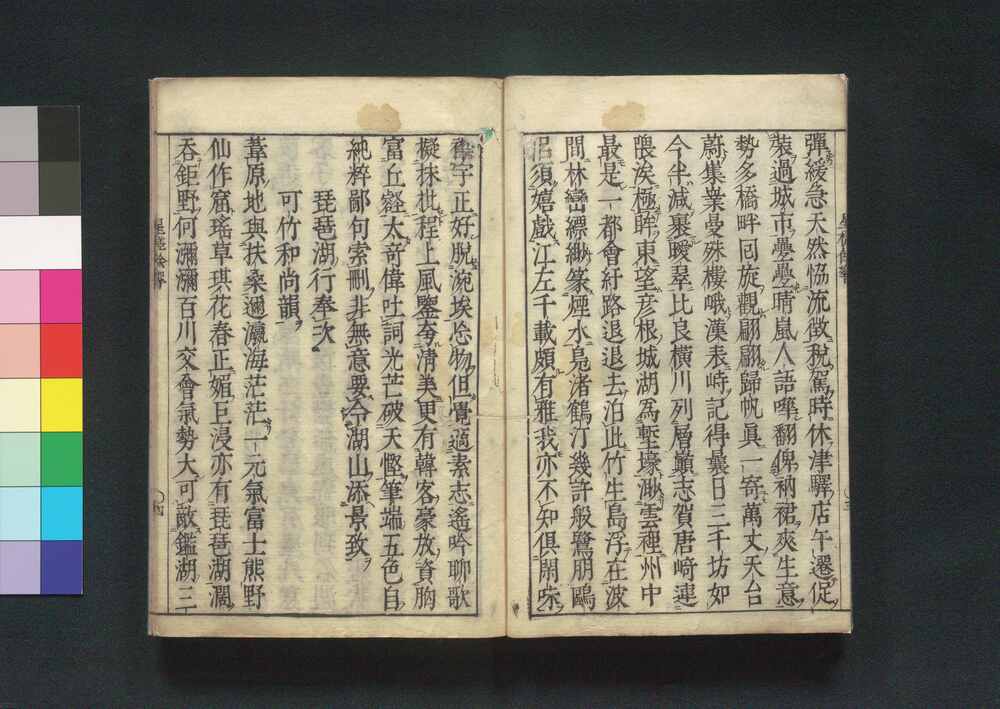 彈緩急天然恊流徴稅駕時休津驛店午遷促
裝過城市疊疊晴嵐人語噪翻俾衲裙爽生意
勢多橋畔囘旋觀翩翩歸帆眞一寄萬丈天台
蔚集業曼殊樓峨漢表峙記得曩日三千坊如
今半减褁曖翠比良橫川列層巓志賀唐崎連
隈涘極眸東望彦根城湖爲塹壕渺雲裡州中
最是一都會紆路退退去泊此竹生島浮在波
間林巒縹緲篆煙水鳧渚鶴汀幾許般鷺朋鷗
侶須嬉戲江左千載頗有雅我亦不知俱閙
宇正好脫涴埃忩物但覺適素志遙吟聊歌
擬抹批程上風鑒夸淸美更有韓客豪放資胸
富丘壑太奇偉吐詞光芒破天慳筆端五色自
純粹鄙句索刪非無意要令湖山添景致
琵琶湖行奉次
可竹和尚韻
葦原地與扶桑邇瀛海茫茫一元氣富士熊野
仙作窟瑤草琪花春正媚巨浸亦有琵琶湖濶
吞鉅野何瀰瀰百川交會氣勢大可敵鑑湖三